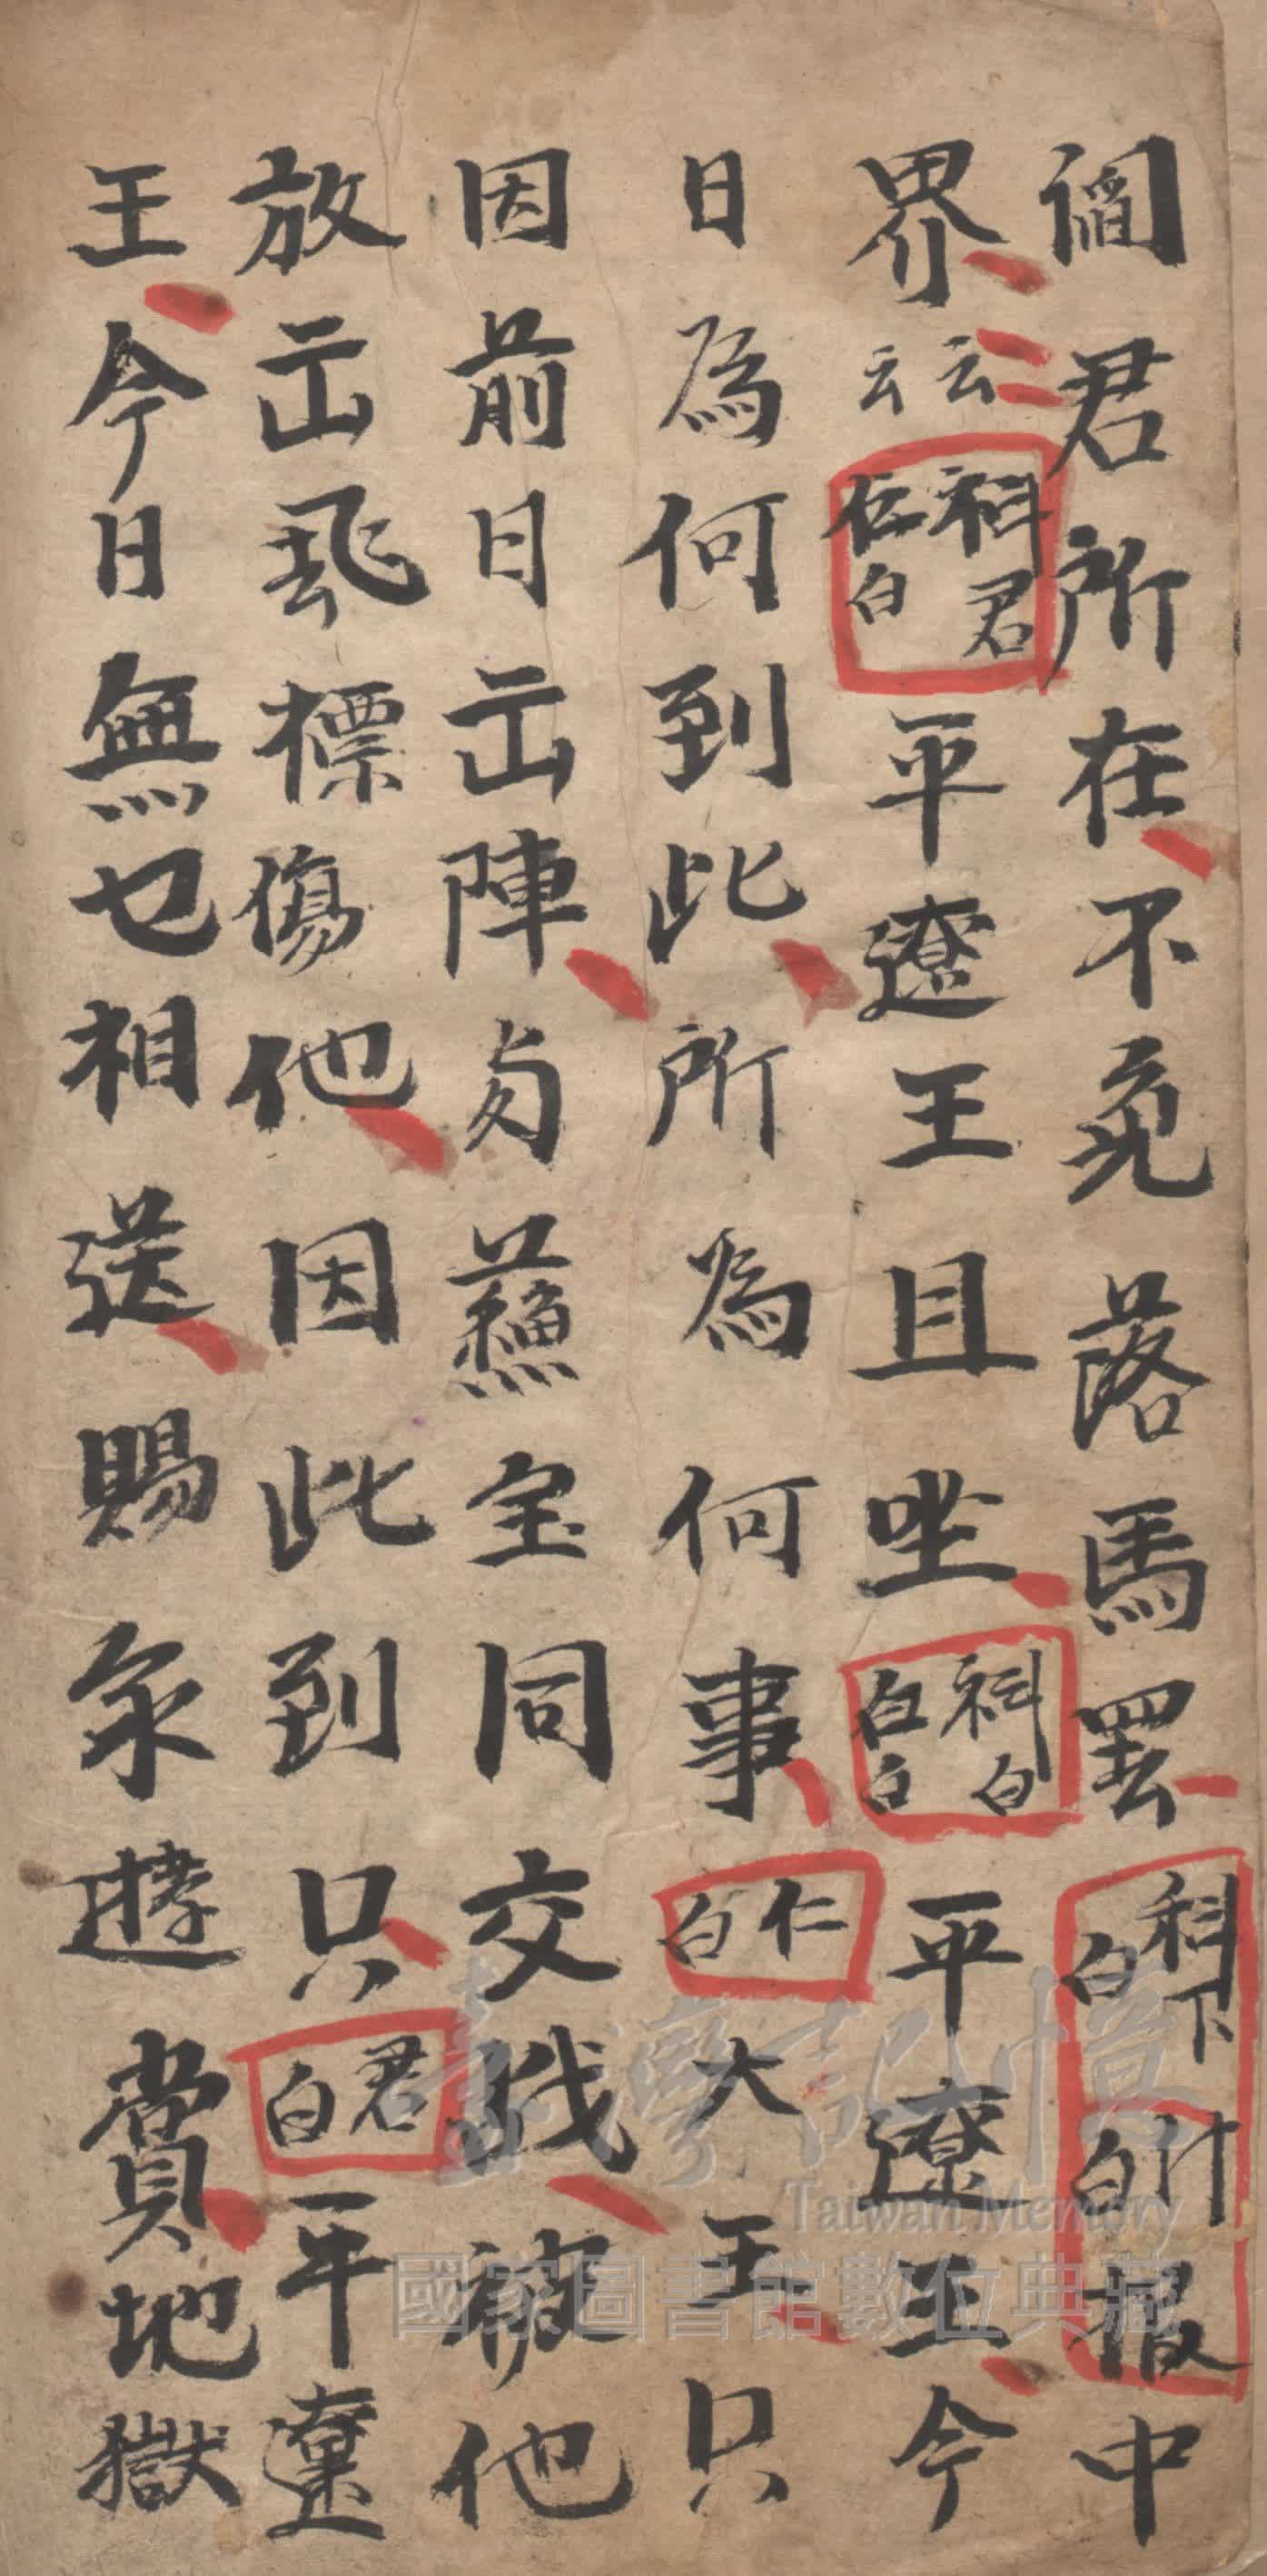 閻君所在不免落馬罢科下白介白报中
界云云科君仁白平遼王且坐科白白平遼王今
日為何到此所為何事仁白大王只
因前日出陣与蘓宝同交战被他
放出飛標傷他因此到只君白平遼
王今日無乜相送賜永遊賞地獄
臺灣記憶
Taiwan Memory
國家圖書館數位典藏